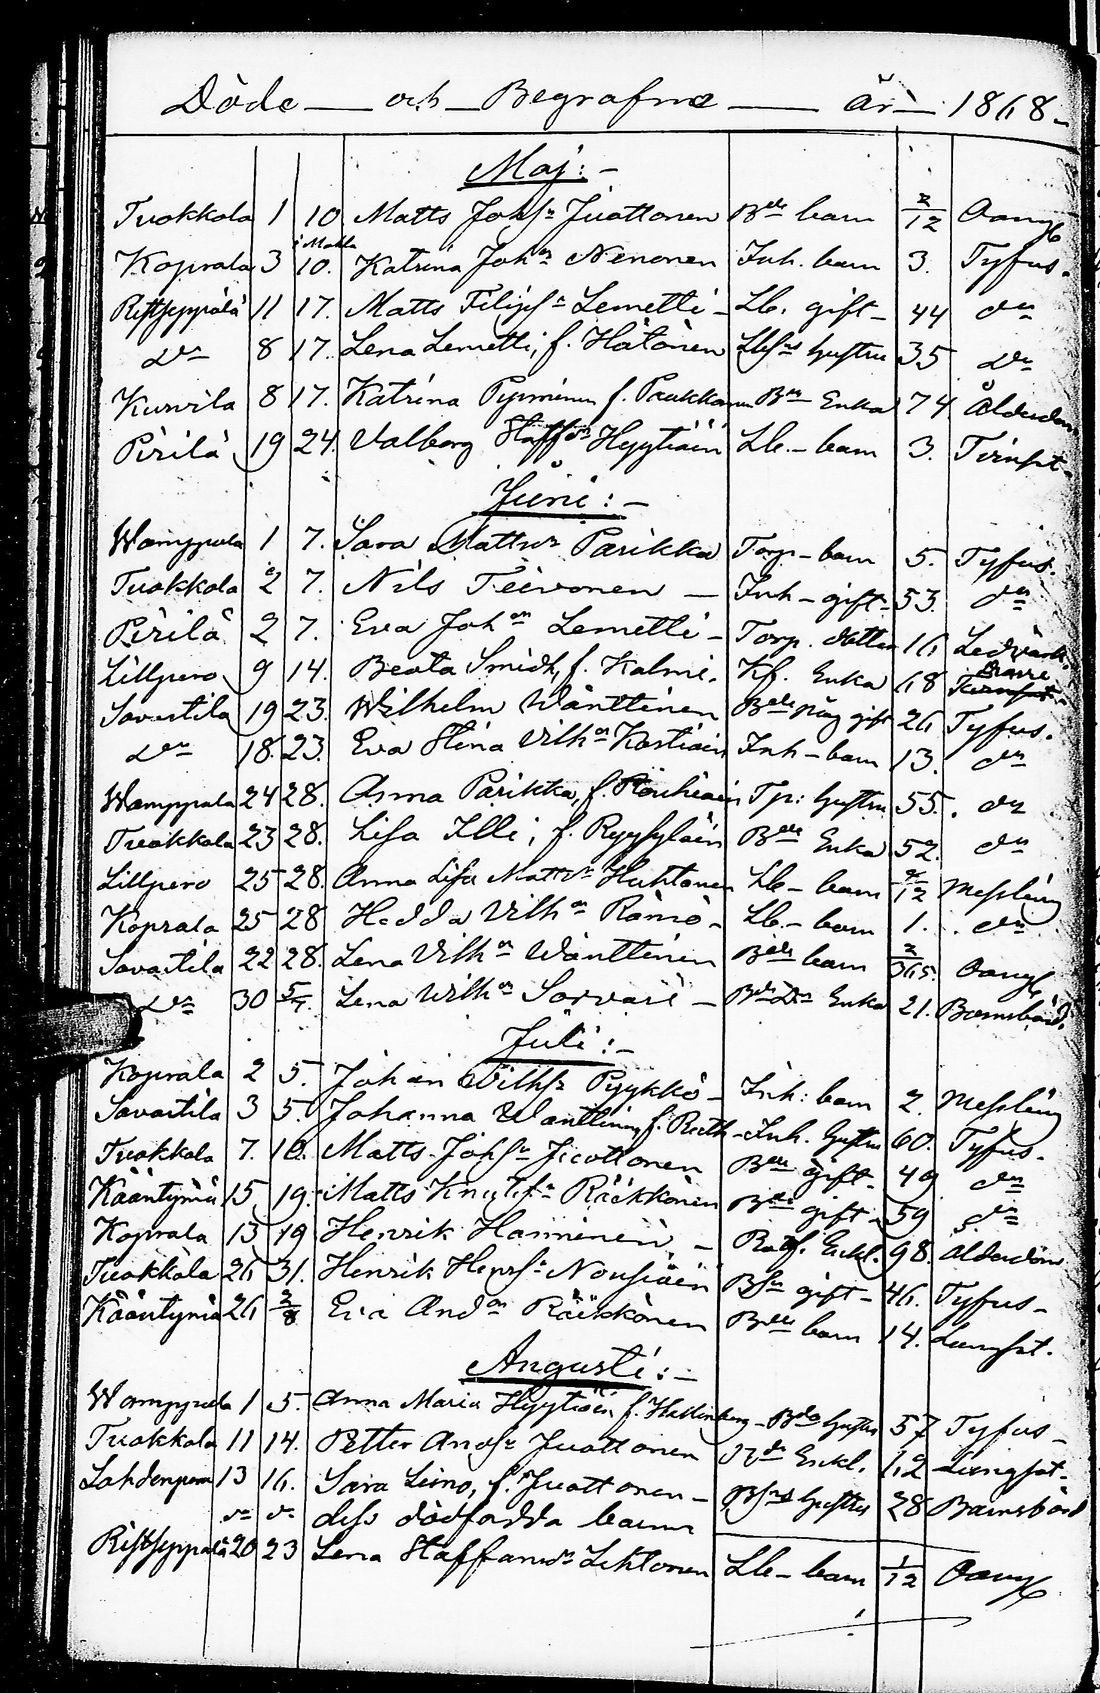 Döde — och — Begrafne — år — 1868
Maj: –
Tuokkola 1 10 Matts Johs: Juottonen B:de barn 2/12 Oang
Koprala 3 i Makla 10. Katrina Joh:n Nenonen Inh. barn 3. Tyfus.
Ristseppälä 11 17. Matts Filips:n Lemetti – Lb. gift – 44 d:o
D:o 8 17. Lena Lemetti, f. Hätönen Lbs:ns hustru 35 D:o
Kurvila 8 17. Katrina Pyrninen f. Paukkonen B:n Enka 74 Ålderdom
Pirilä 19 24. Valborg Staff:n Hyytiäin Lb. – barn 3.
Juni: –
Wamppala 1 7. Sara Matts:r Parikka Torp – barn 5. Tyfus.
Tuokkola 2 7. Nils Teivonen – Inh – gift – 53. d:o
Pirilä 2 7. Eva Joh:on Lemetti – Torp. dotter 16
Lillpero 9 14. Beata Smidh, f. Kalmi. Kf. Enka 68
Savertila 19 23. Wilhelm Wänttinen B:de måg gift 26 Tyfus.
D:o 18. 23. Eva Stina Vilh:n Kostiain Inh – barn 13. d:o
Wamppala 24 28. Anna Parikka, f. Tp: hustru 55. d:o
Tuokkola 23 28. Lisa Illi, f. Ryysyläin B:de Enka 52. d:o
Lillpero 25 28. Anna Lisa Matts:r Huhtonen Lb – barn /12 Messling
Koprala 25 28 Hedda Vilh:n Rämö – Lb. – barn 1. d:o
Savertila 22 28. Lena Vilh:n Wänttinen B:de barn 2/365. Oang
D:o 30 5/7. Lena Wilh:n Sorvari – Enka 21. Barnsbörd.
Juli: –
Koprala 2 5. Johan Wilhs: Pyykkö – Inh: barn 2. Messling
Savertila 3 5. Johanna Wänttinen, f. Rath – Inh. hustru 60. Tyfus.
Tuokkola 7. 10. Matts Johs:n Juottonen B:de gift – 49 d:o
Kääntymä 15 19. Matts Knuts:n Räikkönen B:de gift – 59 d:o
Koprala 13 19 Henrik Hanninen – Enkl. 98. Ålderdom
Tuokkola 26 31. Henrik Henrs:n Nousiäin B:n gift – 46. Tyfus –
Kääntymä 26 2/8 Eva And:on Räikkönen B:de barn 14. Lungsot.
Augusti: –
Wamppala 1 5. Anna Maria Hyytiäin f. Hallenberg – B:de hustru 57 Tyfus –
Tuokkola 11 14. Petter Ands:n Juottonen Enkl. 62 Lungsot –
Lahdenpera 13 16. Sara Leino, f. Juottonen – Bs:ns hustru 28 Barnsbörd
d:o d:o dess dödfödda barn
Ristseppälä 20 23 Lena Staffans:r Lihtonen Lb – barn 1/12 Oang